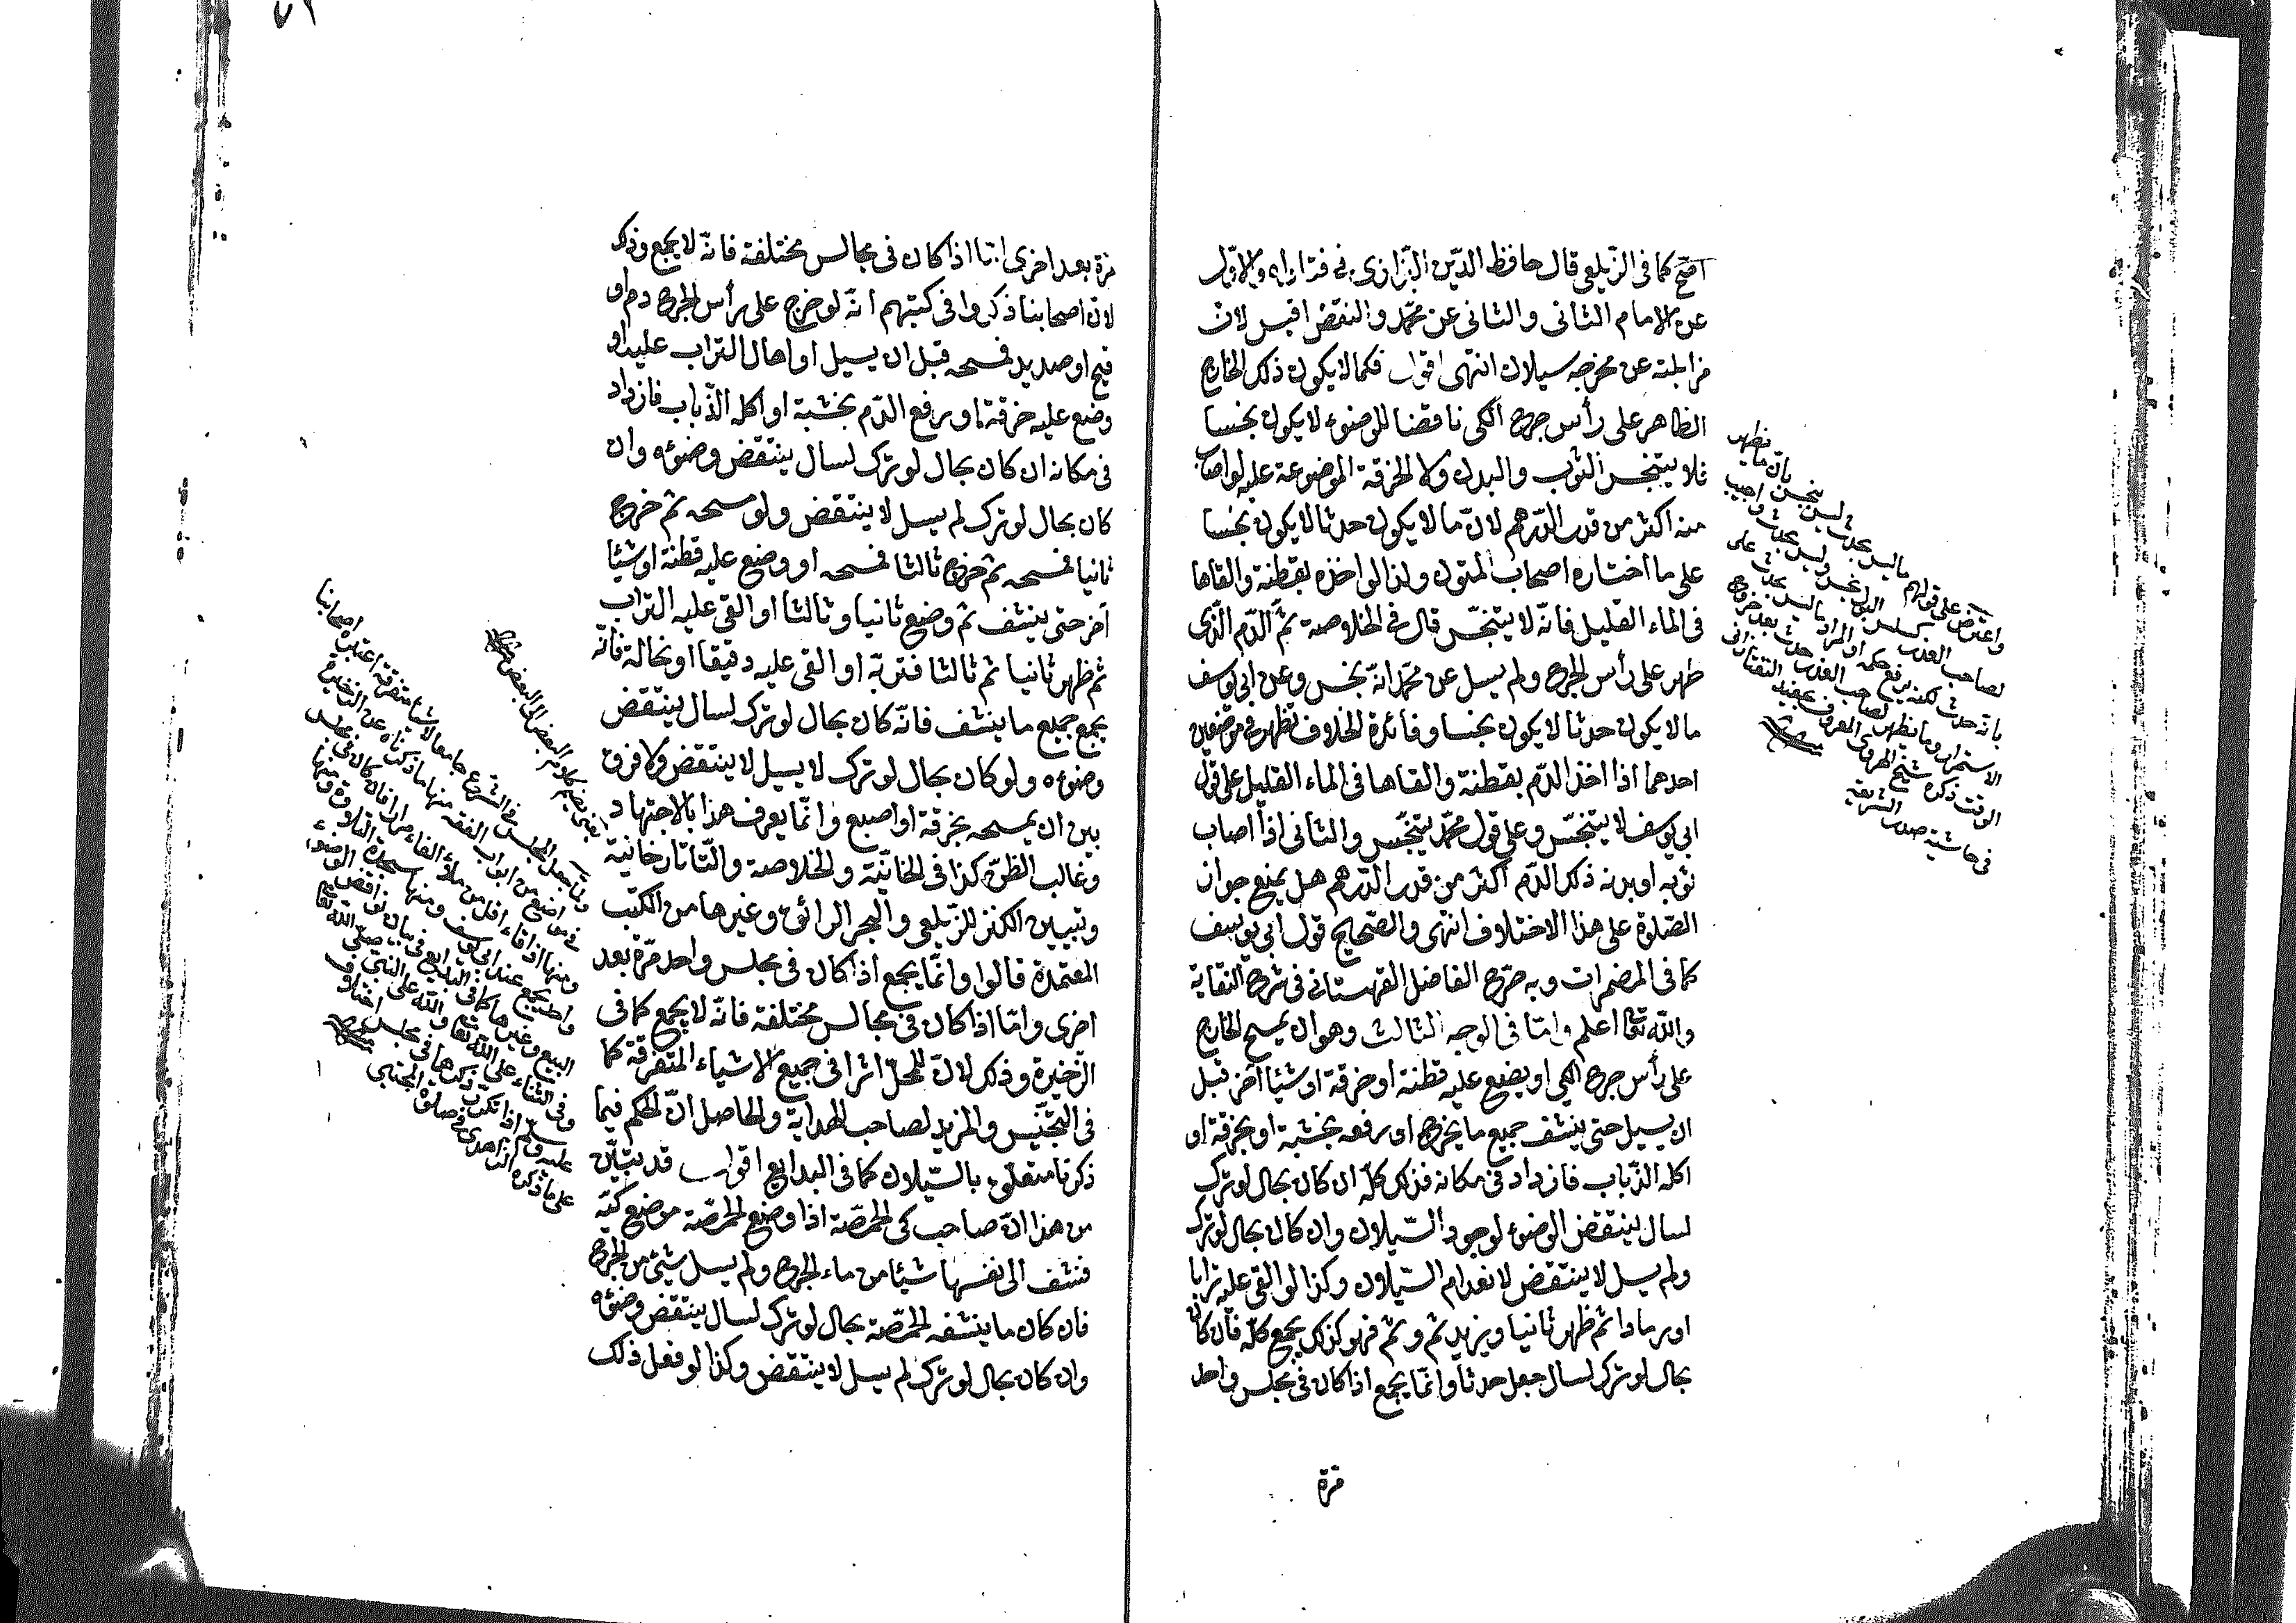 اصح كما فى الزيلعى قال حافظ الدين البزازى فى فتاواه والاول
عن الامام الثانى والثانى عن محمد والنقض اقيس لان
مزايلته عن مخرجه سيلان انتهى اقول فكما لا يكون ذلك الخارج
الظاهر على رأس جرح الكى ناقضا للوضوء لا يكون نجسا
فلا يتنجس الثوب والبدن ولا الخرقة الموضوعة عليه لو اصاب
منه اكثر من قدر الدرهم لان ما لا يكون حدثا لا يكون نجسا
على ما اختاره اصحاب المتون ولذا لو اخذه بقطنة والقاها
فى الماء القليل فانه لا يتنجس قال فى الخلاصة ثم الدم الذى
ظهر على رأس الجرح ولم يسل عن محمد انه نجس وعن ابى يوسف
ما لا يكون حدثا لا يكون نجسا وفائدة الخلاف تظهر فى موضعين
احدهما اذا اخذ الدم بقطنة والقاها فى الماء القليل على قول
ابى يوسف لا يتنجس وعلى قول محمد يتنجس والثانى اذا اصاب
ثوبه او بدنه ذلك الدم اكثر من قدر الدرهم هل يمنع جواز
الصلوة على هذا الاختلاف انتهى والصحيح قول ابى يوسف
كما فى المضمرات وبه صرح الفاضل القهستانى فى شرح النقاية
والله تعا اعلم واما فى الوجه الثالث وهو ان يمسح الخارج
على رأس جرح الكى او يضع عليه قطنة او خرقة او شيئا آخر قبل
ان يسيل حتى ينشف جميع ما يخرج او رفعه بخشبة او بخرقة او
اكله الذباب فازداد فى مكانه فذلك كله ان كان بحال لو ترك
لسال ينتقض الوضوء لوجود السيلان وان كان بحال لو ترك
ولم يسل لا ينتقض لانعدام السيلان وكذا لو القى عليه ترابا
او رمادا ثم ظهر ثانيا ويزيد ثم وثم فهو كذلك يجمع كله فان كان
بحال لو ترك لسال جعل حدثا وانما يجمع اذا كان فى مجلس واحد
مرة
واعترض على قولهم ما ليس بحدث ليس بنجس بان ما يظهر
لصاحب العذر كسلس البول نجس وليس بحدث واجيب
بانه حدث لكنه يرفع حكمه او المراد ما ليس بحدث على
الاستمرار وما يظهر لصاحب العذر حدث بعد خروج
الوقت ذكره شيخ الهروى المعروف بحفيد التفتازانى
فى حاشية صدر الشريعة
مرة بعد اخرى اما اذا كان فى مجالس مختلفة فانه لا يجمع وذلك
لان اصحابنا ذكروا فى كتبهم انه لو خرج على رأس الجرح دم او
قيح او صديد فمسحه قبل ان يسيل او اهال التراب عليه او
وضع عليه خرقة او رفع الدم بخشبة او اكله الذباب فازداد
فى مكانه ان كان بحال لو ترك لسال ينتقض وضوءه وان
كان بحال لو ترك لم يسل لا ينتقض ولو مسحه ثم خرج
ثانيا فمسحه ثم خرج ثالثا فمسحه او وضع عليه قطنة او شيئا
آخر حتى ينشف ثم وضع ثانيا وثالثا او القى عليه التراب
ثم ظهر ثانيا ثم ثالثا فتربه او القى عليه دقيقا او نخالة فانه
يجمع جميع ما ينشف فانه كان بحال لو ترك لسال ينتقض
وضوءه ولو كان بحال لو ترك لا يسيل لا ينتقض ولا فرق
بين ان يمسحه بخرقة او اصبع وانما يعرف هذا بالاجتهاد
وغالب الظن كذا فى الخانية والخلاصة والتاتارخانية
وتبيين الكنز للزيلعى والبحر الرائق وغيرها من الكتب
المعتمدة قالوا وانما يجمع اذا كان فى مجلس واحد مرة بعد
اخرى واما اذا كان فى مجالس مختلفة فانه لا يجمع كما فى
الذخيرة وذلك لان للمحل اثرا فى جميع الاشياء المتفرقة كما
فى التجنيس والمزيد لصاحب الهداية والحاصل ان الحكم فيما
ذكرنا متعلق بالسيلان كما فى البدايع اقول قد يتبين
من هذا ان صاحب كى الحمصة اذا وضع الحمصة موضع كيه
فنشف الى نفسها شيئا من ماء الجرح ولم يسل شئ من الجرح
فان كان ما ينشفه الحمصة بحال لو ترك لسال ينتقض وضوءه
وان كان بحال لو ترك لم يسل لا ينتقض وكذا لو فعل ذلك
يعنى ضم كلام البعض الى البعض
وانما جعل المجلس فى الشرع جامعا لاشياء متفرقة اعتبره اصحابنا
فى مواضع من ابواب الفقه منها ما ذكرناه عن الذخيرة
ومنها اذا قاء اقل من ملاء الفاء مرارا فان كان فى مجلس
واحد يجمع عند ابى يوسف ومنها سجدة التلاوة ومنها
البيع وغيرها كما فى البدايع فى بيان نواقض الوضوء
وفى الثناء على الله تعا والله على النبى صلى الله تعا
عليه وسلم اذا تكرر ذكرها فى مجلس اختلاف
على ما ذكره الزاهدى فى صلوة المجتبى